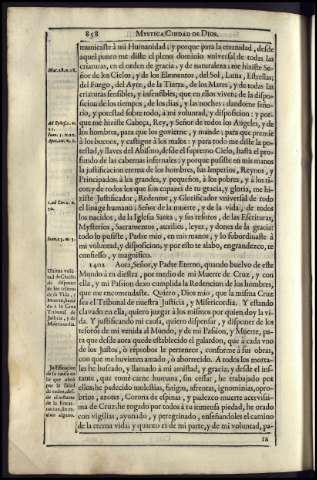 858 MYSTICA CIUDAD DE DIOS.
municaste à mi Humanidad; y porque para la eternidad, desde
aqui punto me diste el pleno dominio universal de todas las
criaturas, en el orden de gracia, y de naturaleza: me hiziste Se-
ñor de los Cielos, y de los Elementos, del Sol, Luna, Estrellas;
del Fuego, del Ayre, de la Tierra, de los Mares, y de todas las
criaturas sensibles, y insensibles, que en ellos viven; de la dispo-
sicion de los tiempos, de los dias, y las noches; dandome seño-
rio, y potestad sobre todo, à mi voluntad, y disposicion: y por-
que me hiziste Cabeça, Rey, y Señor de todos los Angeles, y de
los hombres, para que los govierne, y mande; para que premie
à los buenos, y castigue à los malos: y para todo me diste la po-
testad, y llaves del Abismo, desde el supremo Cielo, hasta el pro-
fundo de las cabernas infernales: y porque pusiste en mis manos
la justificacion eterna de los hombres, sus Imperios, Reynos, y
Principados, à los grandes, y pequeños, à los pobres, y à los ri-
cos; y de todos los que son capazes de tu gracia, y gloria, me hi-
ziste Justificador, Redentor, y Glorificador universal de todo
el linage humano: Señor de la muerte, y de la vida; de todos
los nacidos, de la Iglesia Santa, y sus tesoros, de las Escrituras,
Mysterios, Sacramentos, auxilios, leyes, y dones de la gracia:
todo lo pusiste, Padre mio, en mis manos, y lo subordinaste à
mi voluntad, y disposicion, y por esto te alabo, engrandezco, te
confiesso, y magnifico.
1402 Aora, Señor, y Padre Eterno, quando buelvo de este
Mundo à tu diestra, por medio de mi Muerte de Cruz, y con
ella, y mi Passion dexo cumplida la Redencion de los hombres,
que me encomendaste. Quiero, Dios mio, que la misma Cruz
sea el Tribunal de nuestra Justicia, y Misericordia. Y estando
clavado en ella, quiero juzgar à los mismos por quien doy la vi-
da. Y justificando mi causa, quiero dispensar, y disponer de los
tesoros de mi venida al Mundo, y de mi Passion, y Muerte, pa-
ra que desde aora quede establecido el galardon, que à cada vno
de los Justos, ò reprobos le pertenece, conforme à sus obras,
con que me huvieren amado, ò aborrecido. A todos los morta-
les he buscado, y llamado à mi amistad, y gracia; y desde el ins-
tante, que tomè carne humana, sin cessar, he trabajado por
ellos; he padecido molestias, fatigas, afrentas, ignominias, opro-
brios, azotes, Corona de espinas, y padezco muerte acervissi-
ma de Cruz: he rogado por todos à tu inmensa piedad, he orado
con vigilias, ayunado, y peregrinado, enseñandoles el camino
de la eterna vida; y quanto es de mi parte, y de mi voluntad, pa-
ra